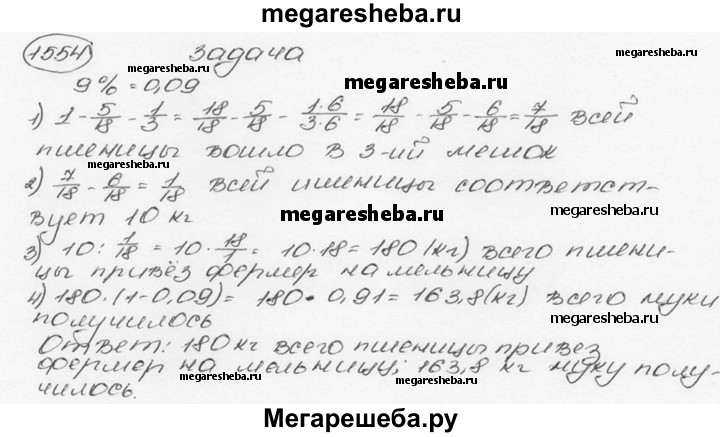 megaresheba.ru
1554) Задача
megaresheba.ru
9% = 0,09 megaresheba.ru
1) 1 - 5/18 - 1/3 = 18/18 - 5/18 - 1·6/3·6 = 18/18 - 5/18 - 6/18 = 7/18 всей
пшеницы вошло в 3-ий мешок
megaresheba.ru megaresheba.ru
2) 7/18 - 6/18 = 1/18 всей пшеницы соответст-
вует 10 кг megaresheba.ru megaresheba.ru
3) 10 : 1/18 = 10 · 18/1 = 10·18 = 180 (кг) всего пшени-
цы привёз фермер на мельницу
4) 180·(1-0,09) = 180 · 0,91 = 163,8 (кг) всего муки
получилось megaresheba.ru megaresheba.ru
Ответ: 180 кг всего пшеницы привез
фермер на мельницу; 163,8 кг муку полу-
megaresheba.ru megaresheba.ru
чилось.
Мегарешеба.ру